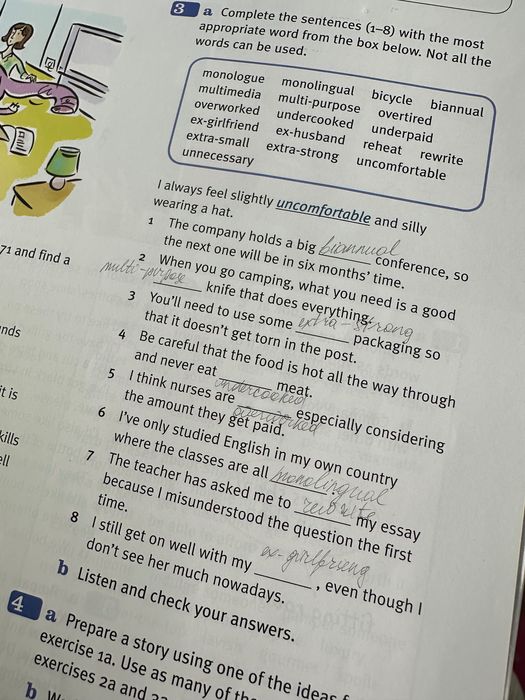 3 a Complete the sentences (1–8) with the most
appropriate word from the box below. Not all the
words can be used.
monologue monolingual bicycle biannual
multimedia multi-purpose overtired
overworked undercooked underpaid
ex-girlfriend ex-husband reheat rewrite
extra-small extra-strong uncomfortable
unnecessary
I always feel slightly uncomfortable and silly
wearing a hat.
1 The company holds a big biannual conference, so
the next one will be in six months' time.
2 When you go camping, what you need is a good
multi-purpose knife that does everything.
3 You'll need to use some extra-strong packaging so
that it doesn't get torn in the post.
4 Be careful that the food is hot all the way through
and never eat undercooked meat.
5 I think nurses are overworked especially considering
the amount they get paid.
6 I've only studied English in my own country
where the classes are all monolingual.
7 The teacher has asked me to rewrite my essay
because I misunderstood the question the first
time.
8 I still get on well with my ex-girlfrieng, even though I
don't see her much nowadays.
b Listen and check your answers.
4 a Prepare a story using one of the ideas
exercise 1a. Use as many of
exercises 2a and
b
71 and find a
nds
it is
kills
ell